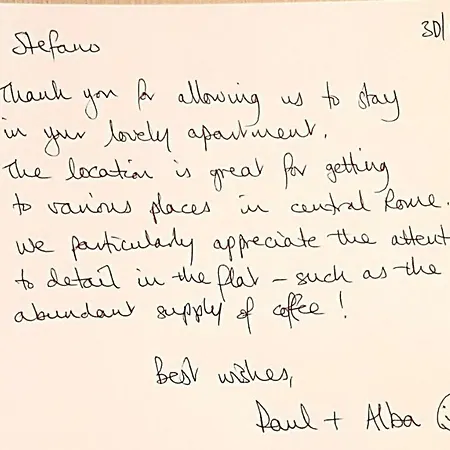 30/
Stefano
Thank you for allowing us to stay
in your lovely apartment.
The location is great for getting
to various places in central Rome.
We particularly appreciate the attent
to detail in the flat – such as the
abundant supply of coffee!
Best wishes,
Paul + Alba